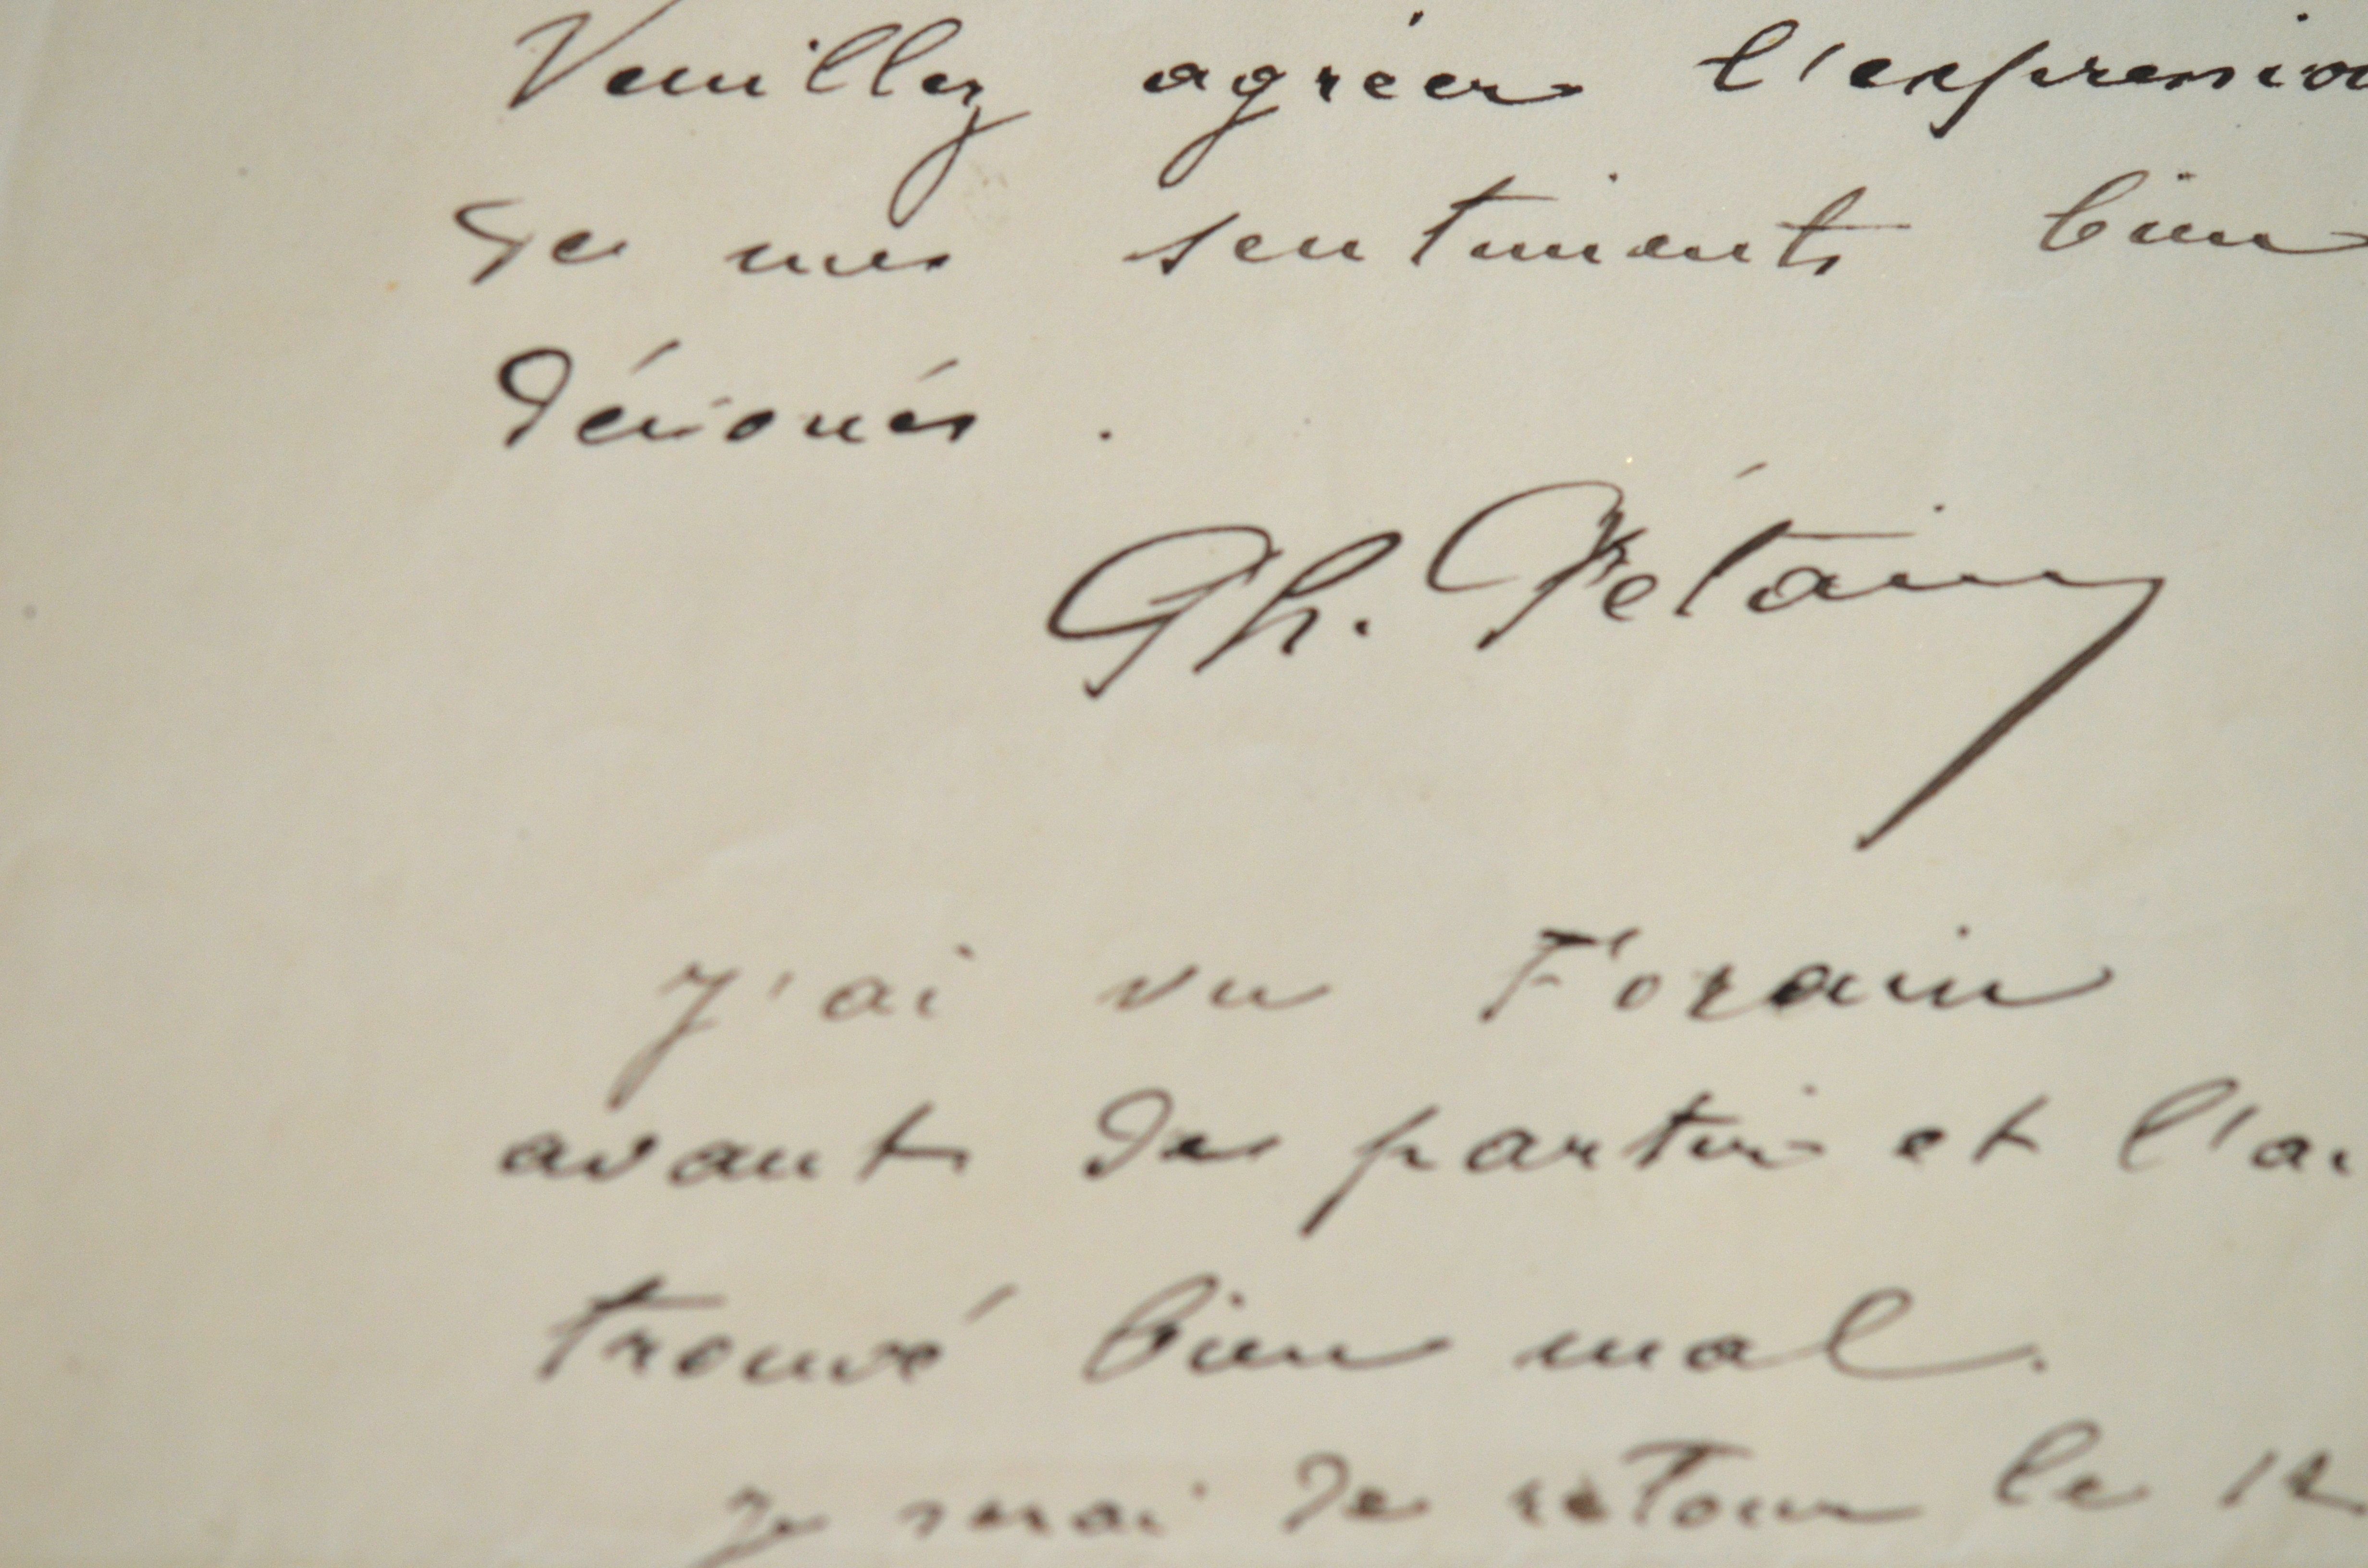 Veuillez agréer l'expression
de mes sentiments bien
dévoués.
Ph. Pétain
J'ai vu Forain
avant de partir et l'ai
trouvé bien mal.
Je serai de retour le 12